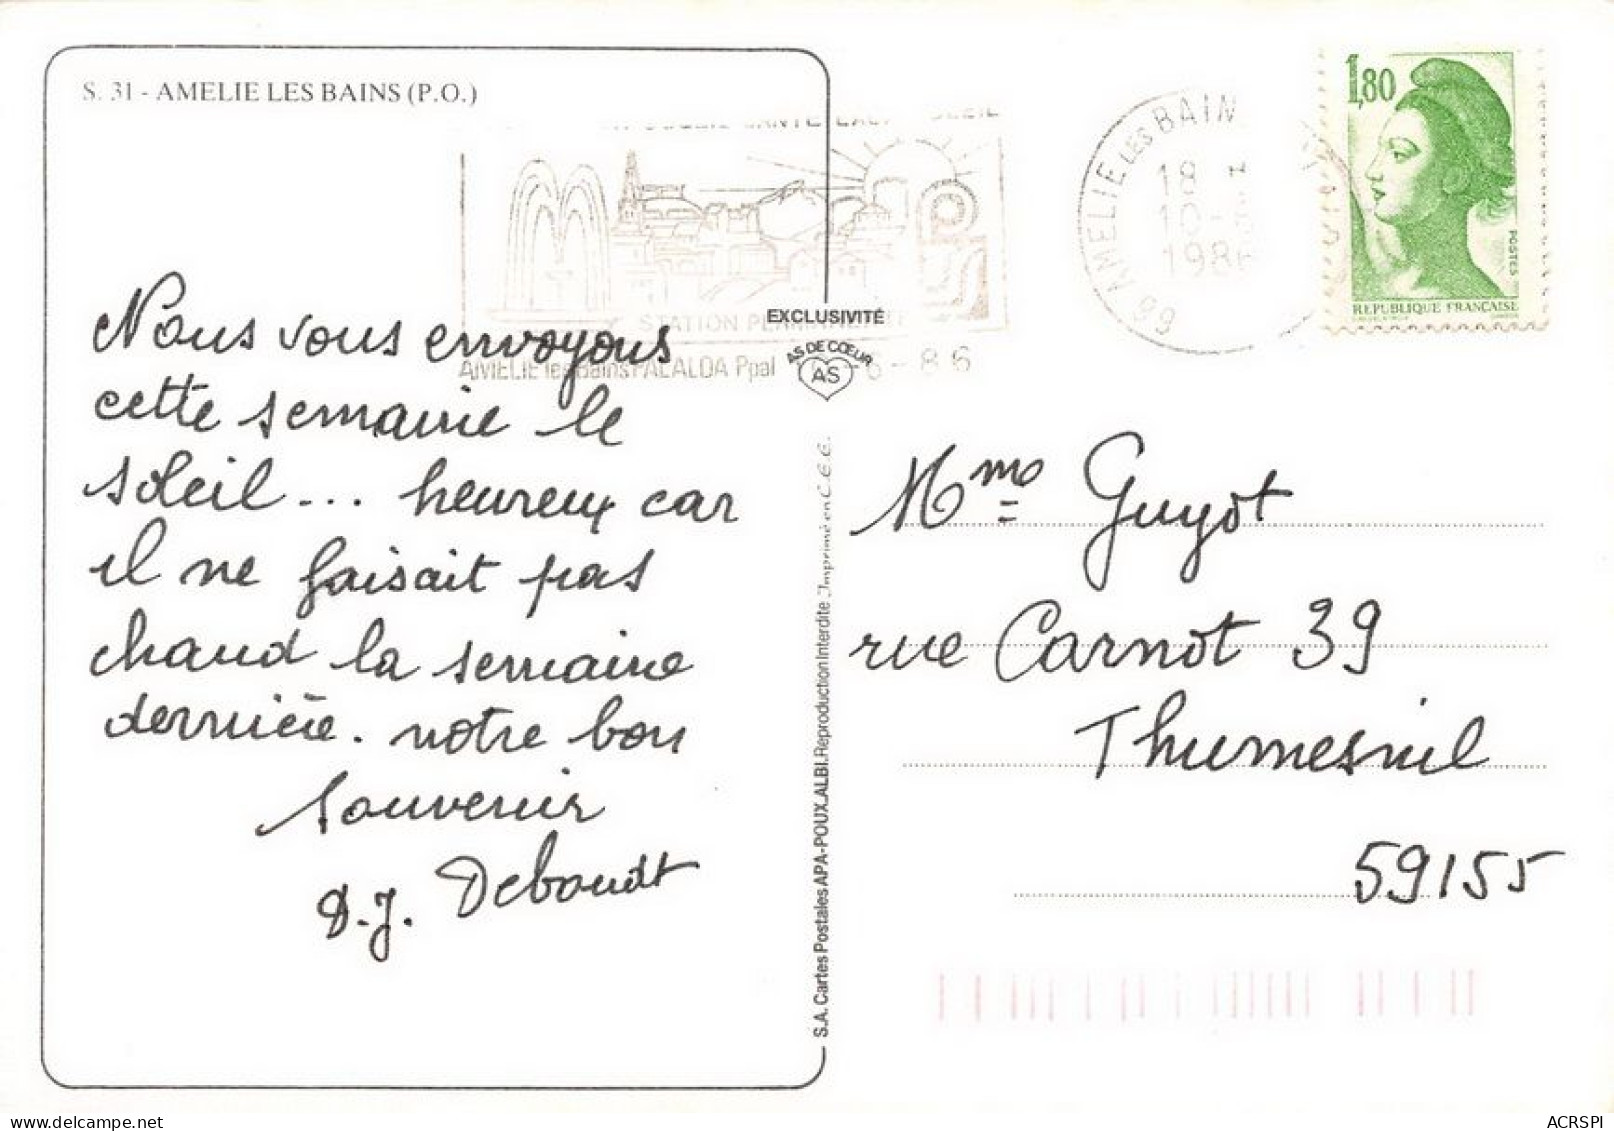 S. 31 - AMELIE LES BAINS (P.O.)
STATION
AMELIE les Bains PALALDA Ppal 6-86
AMELIE LES BAIN
18
10-
1986
66
1,80
POSTES
REPUBLIQUE FRANÇAISE
EXCLUSIVITÉ
AS DE CŒUR
AS
Nous vous envoyons
cette semaine le
soleil... heureux car
il ne faisait pas
chaud la semaine
dernière. notre bon
souvenir
D.J. Deboudt
Mme Guyot
rue Carnot 39
Thumesnil
59155
S.A. Cartes Postales APA-POUX.ALBI.Reproduction Interdite Imprimé en C.E.E.
ACRSPI